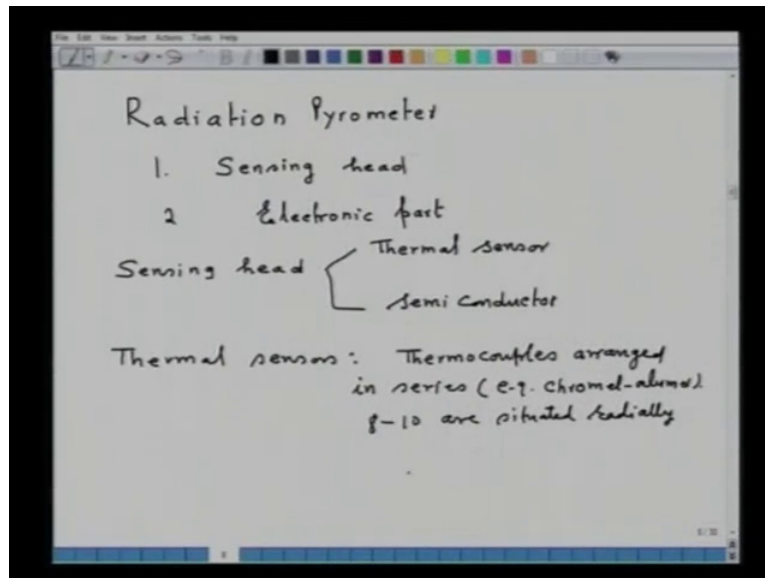 File Edit View Insert Actions Tools Help
Radiation Pyrometer
1. Sensing head
2 Electronic part
Thermal sensor
Sensing head
Semi conductor
Thermal sensors: Thermocouples arranged
in series (e.g. Chromel-alumel)
8-10 are situated radially